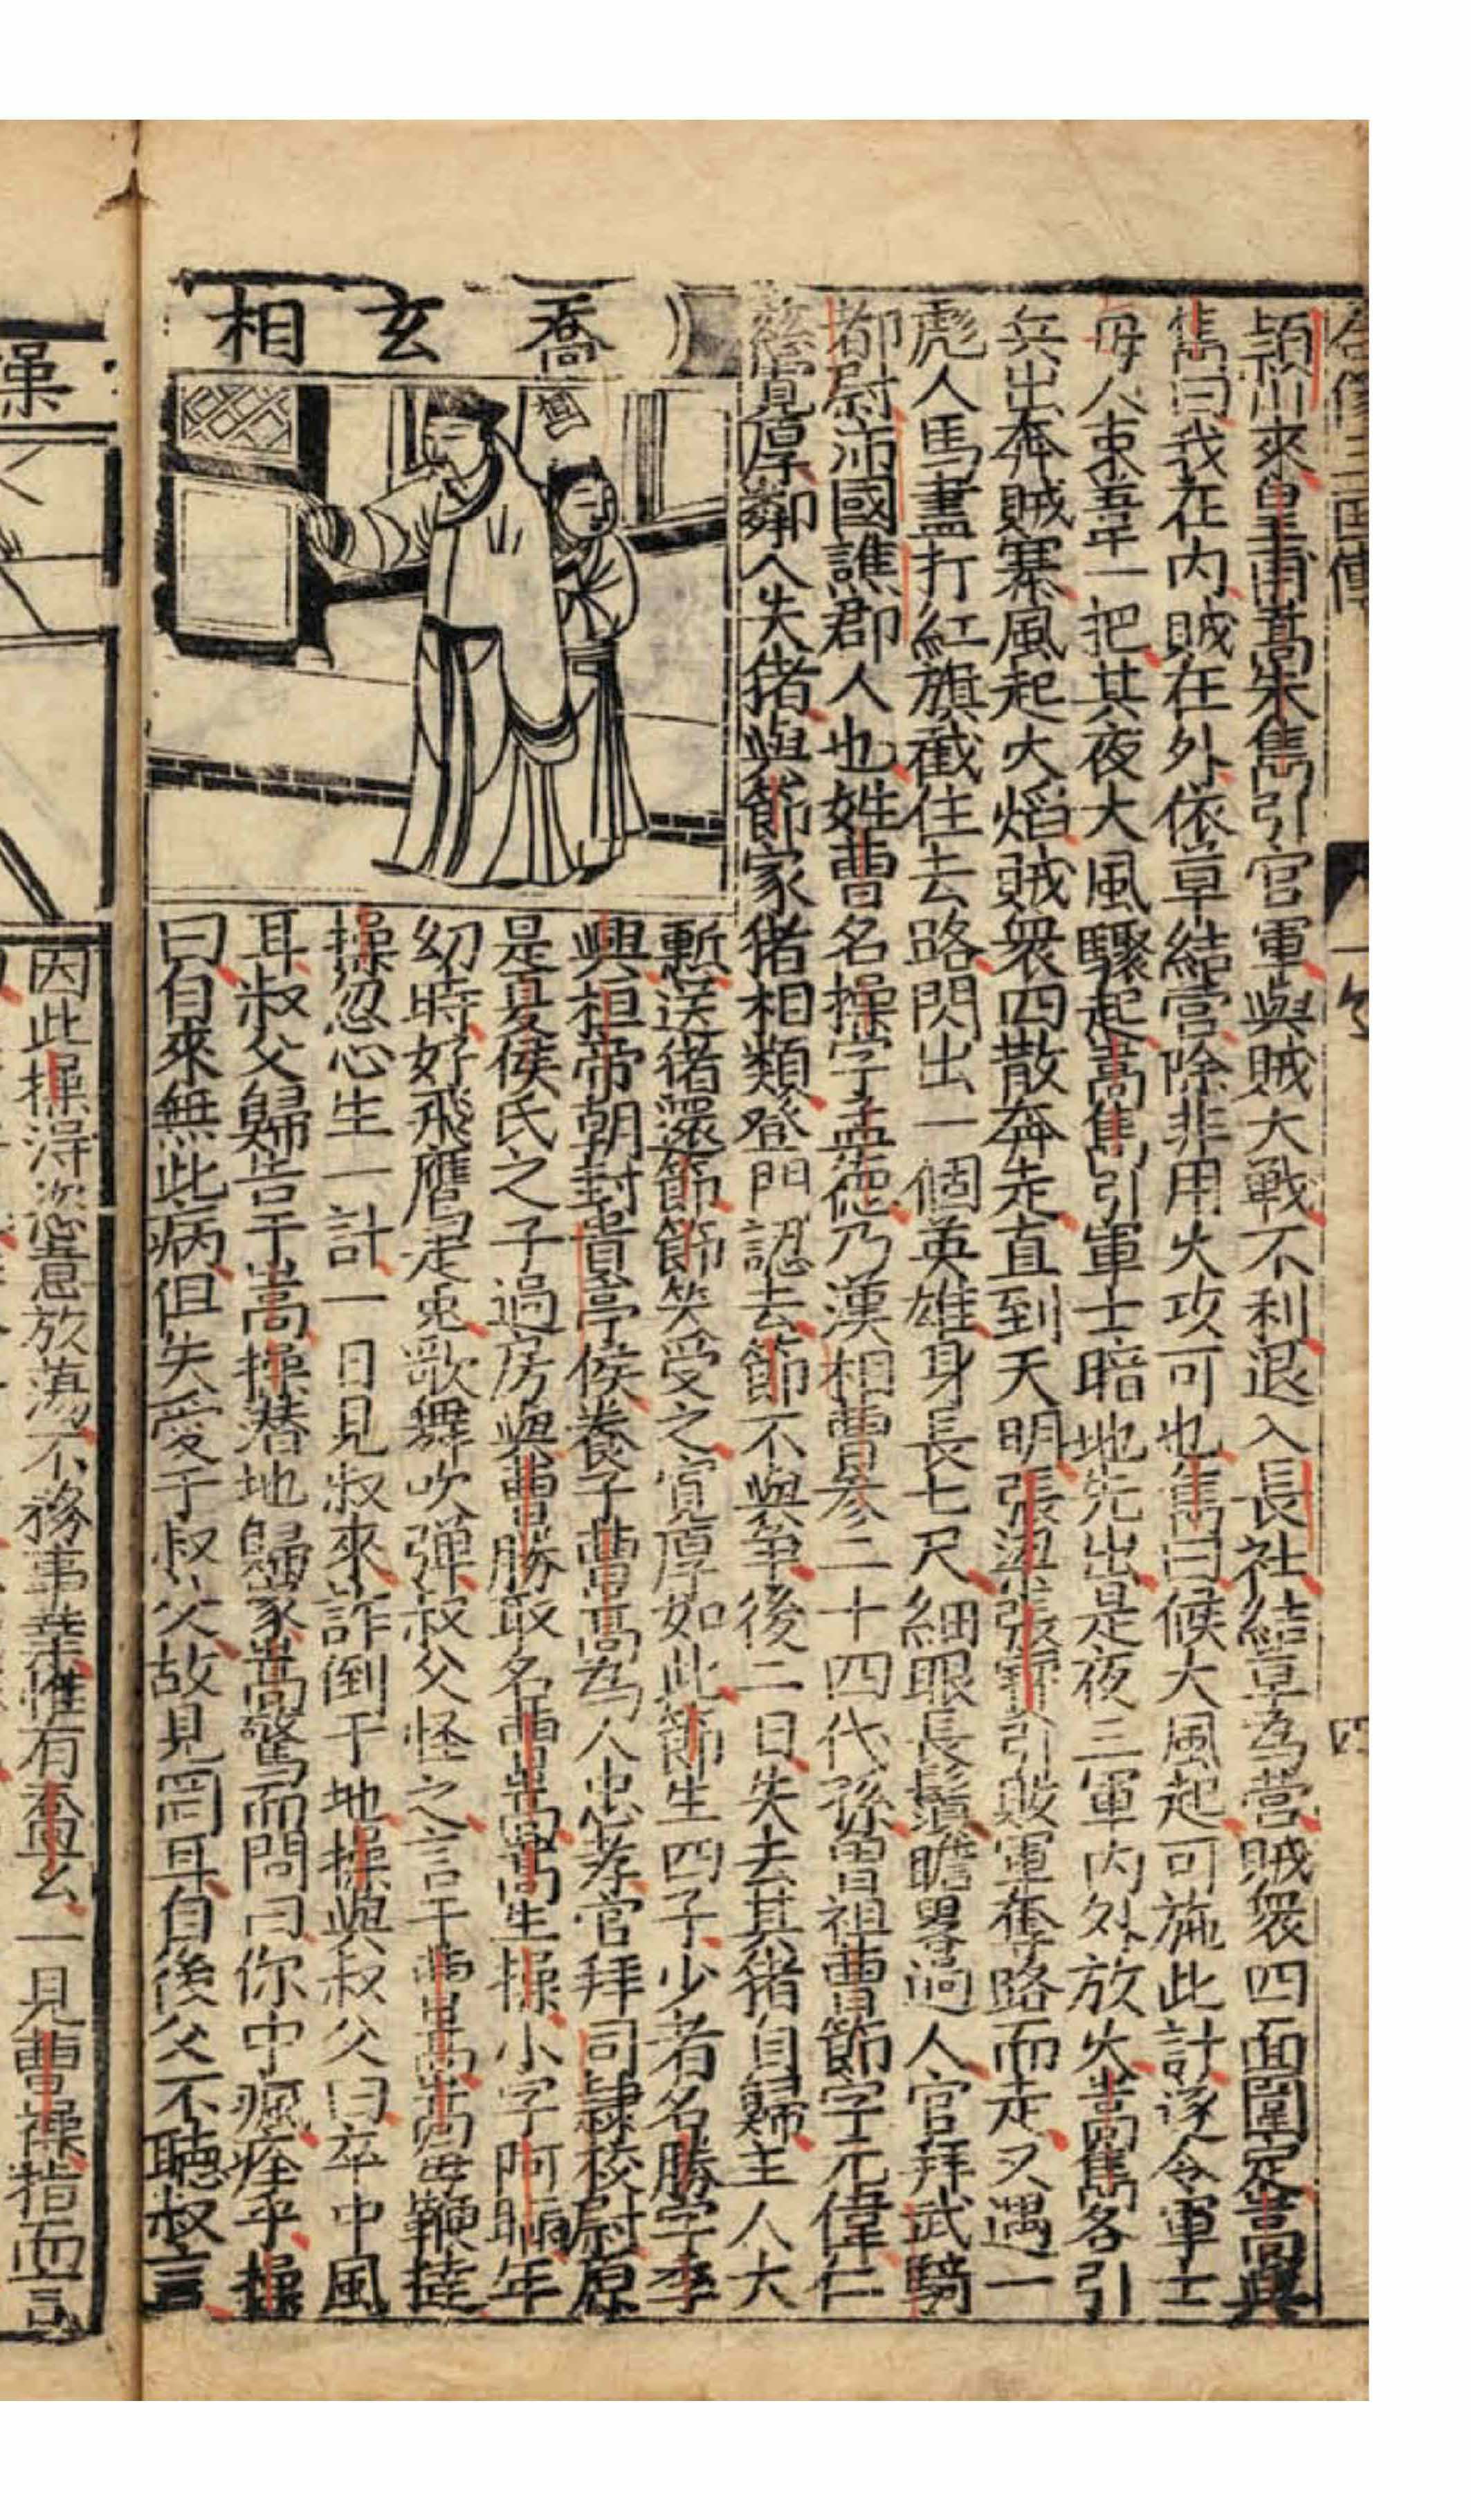 全像三国傳
一卷
四
頴川來皇甫嵩朱雋引官軍與賊大戰不利退入長社結草為營賊衆四面圍定嵩與
雋曰我在内賊在外依草結營除非用火攻可也雋曰候大風起可施此計遂令軍士
每人束草一把其夜大風驟起嵩雋引軍士暗地先出是夜三軍内外放火嵩雋各引
兵出奔賊寨風起火焰賊衆四散奔走直到天明張梁張寶引敗軍奪路而走又遇一
彪人馬盡打紅旗截住去路閃出一個英雄身長七尺細眼長鬚瞻畧過人官拜武騎
都尉沛國譙郡人也姓曹名操字孟德乃漢相曹參二十四代孫曾祖曹節字元偉仁
慈寬厚鄰人失猪與節家猪相類登門認去節不與爭後二日失去其猪自歸主人大
喬玄相
慙送猪還節節笑受之寬厚如此節生四子少者名勝字季
興桓帝朝封費亭侯養子曹嵩為人忠孝官拜司隸校尉原
是夏侯氏之子過房與曹勝取名曹嵩嵩生操小字阿瞞年
幼時好飛鷹走兎歌舞吹彈叔父怪之言于曹嵩嵩每鞭撻
操忽心生一計一日見叔來詐倒于地操與叔父曰卒中風
耳叔父歸告于嵩操潜地歸家嵩驚而問曰你中瘋痊乎操
曰自來無此病但失愛于叔父故見罔耳自後父不聽叔言
操
因此操得恣意放蕩不務事業惟有喬玄一見曹操指而言